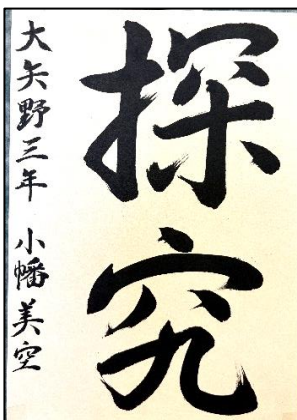 探究
大矢野三年 小幡美空